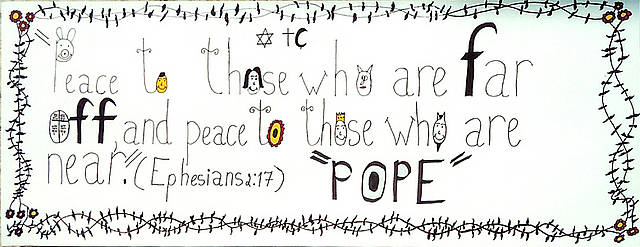 ✡ † C
"Peace to those who are far
off, and peace to those who are
near." (Ephesians 2:17) "POPE"